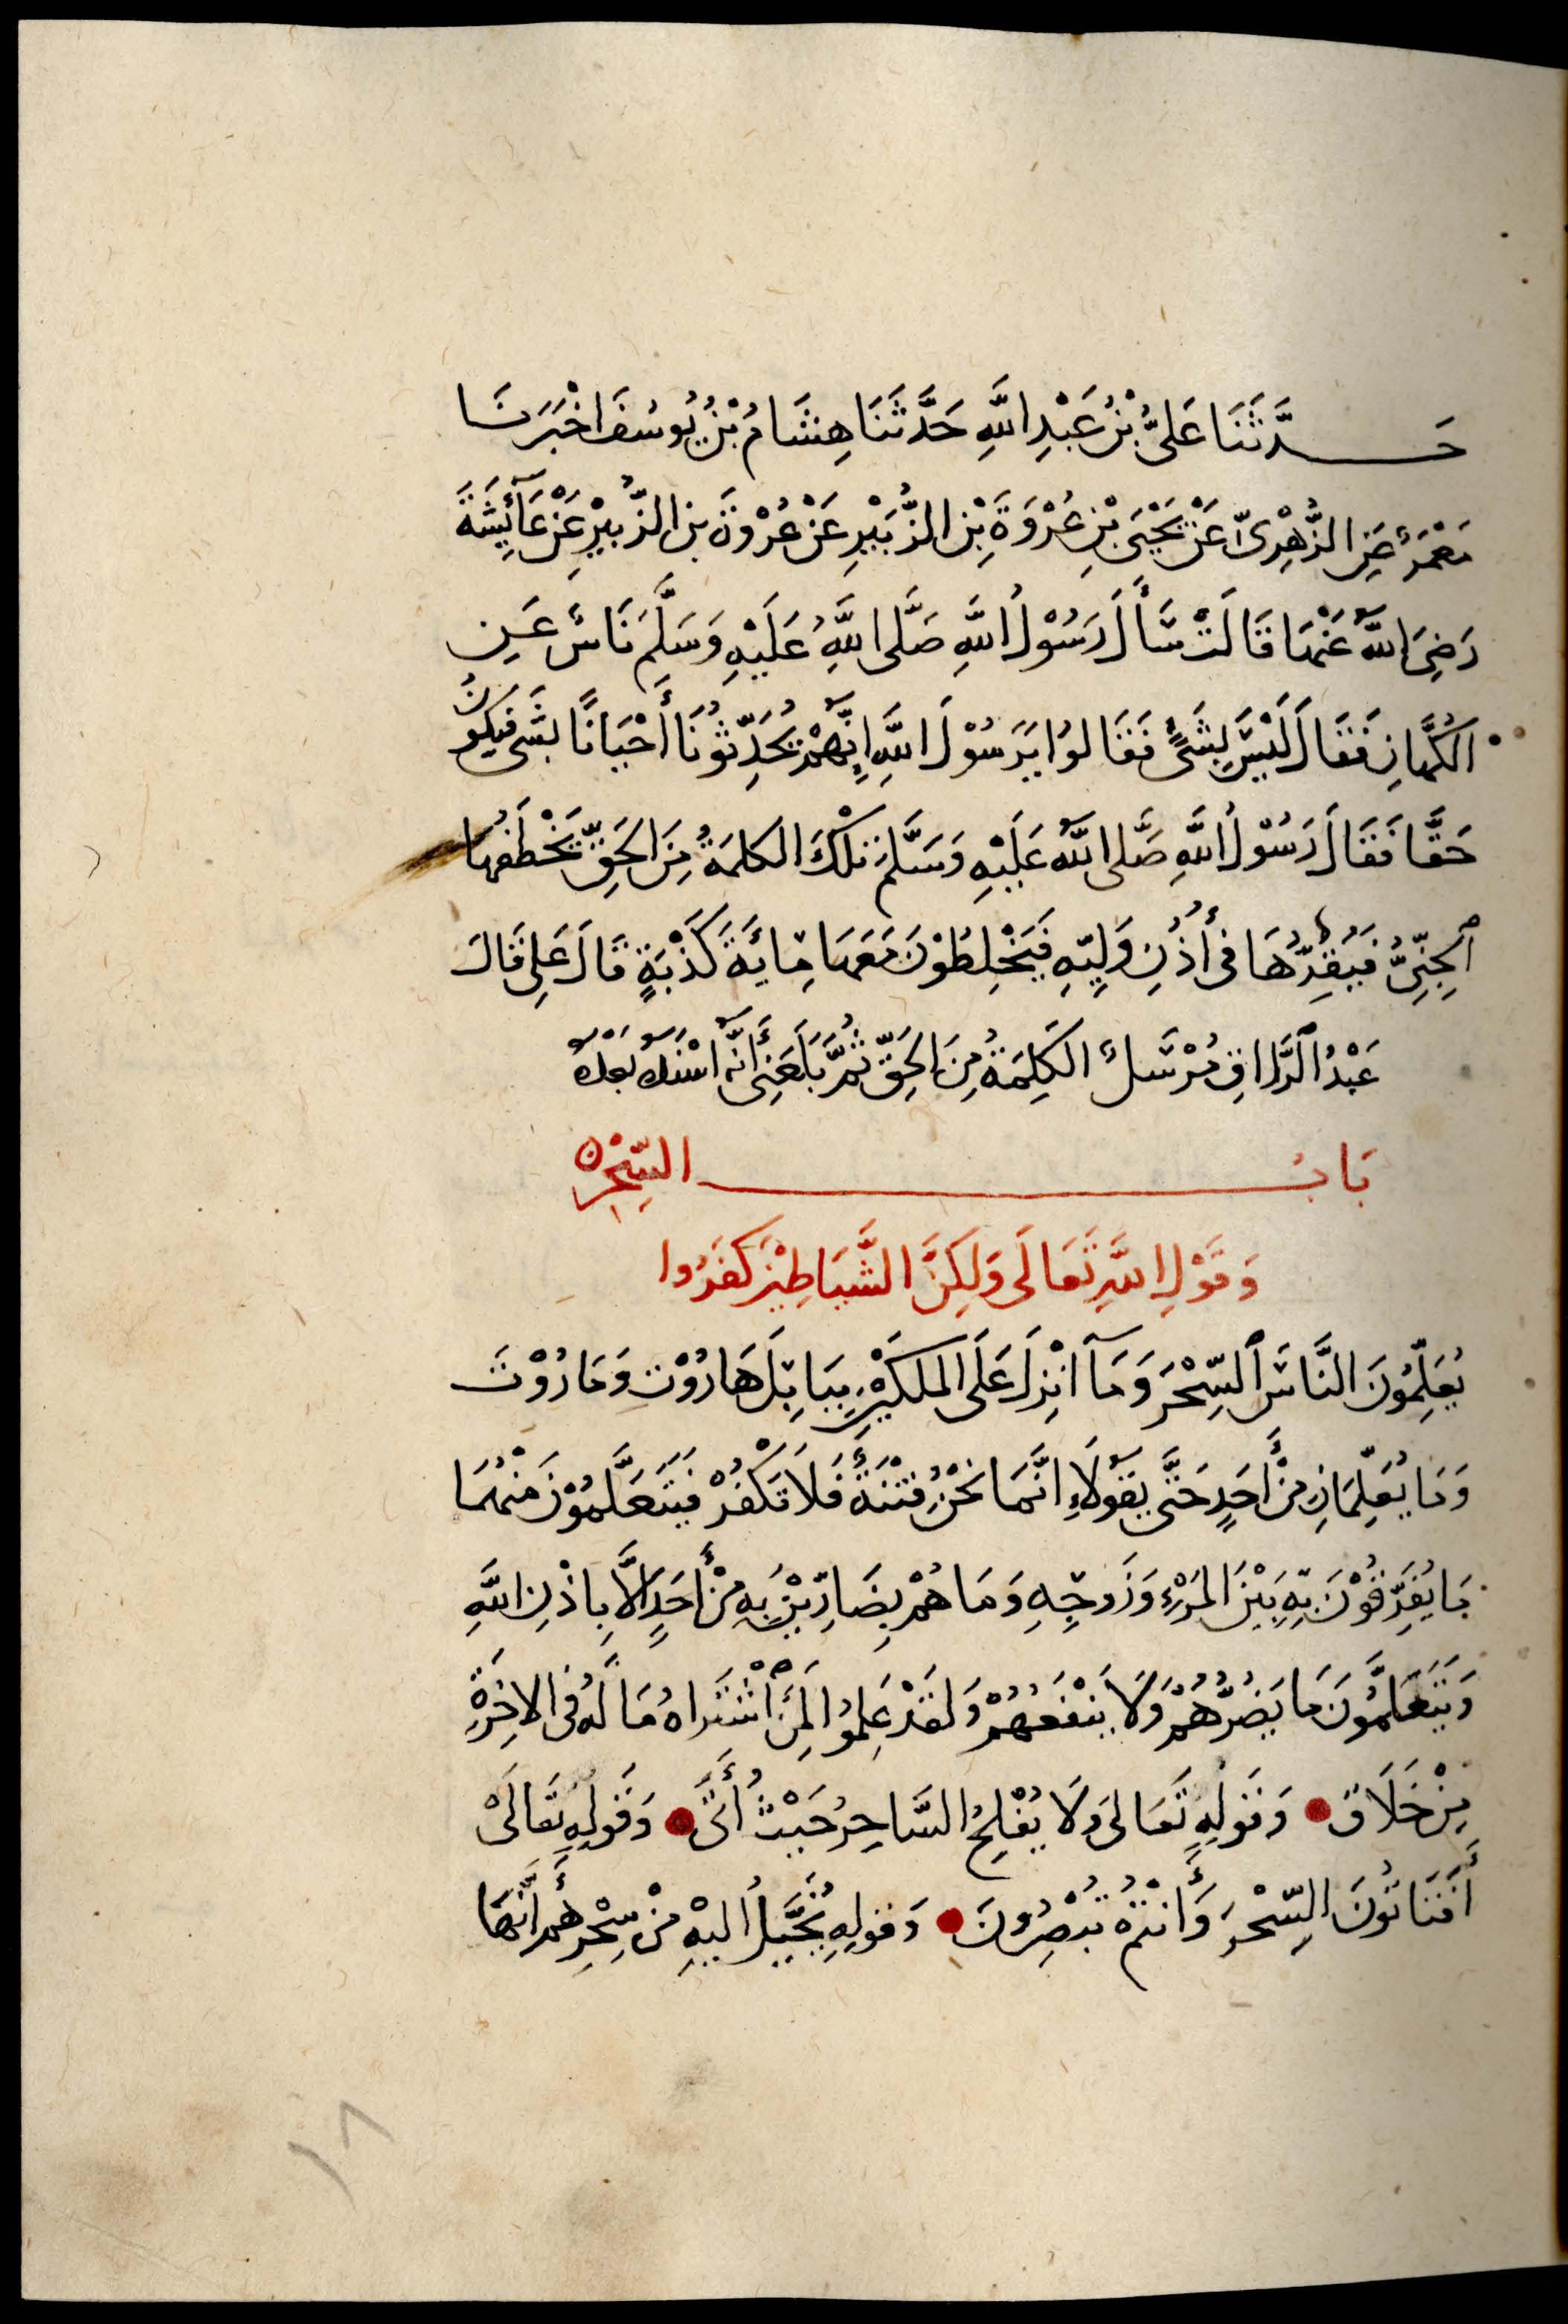 حَدَّثَنَا عَلِىُّ بْنُ عَبْدِ اللَّهِ حَدَّثَنَا هِشَامُ بْنُ يُوسُفَ اخْبَرَنَا
مَعْمَرٌ عَنِ الزُّهْرِىِّ عَنْ يَحْيَى بْنِ عُرْوَةَ بْنِ الزُّبَيْرِ عَنْ عُرْوَةَ بن الزُّبيْرِ عَنْ عَآئِشَةَ
رَضِىَ اللَّهُ عَنْهَا قَالَتْ سَأَلَ رَسُوْلَ اللَّهِ صَلَّى اللَّهُ عَلَيْهِ وَسَلَّمَ نَاسٌ عَنِ
الكُهَّانِ فَقَالَ لَيْسَ بِشَىْءٍ فَقَالُوا يَرَسُوْلَ اللَّهِ إِنَّهُمْ يُحَدِّثُونَا أَحْيَانًا بشَىء فَيَكُونُ
حَقًّا فَقَالَ رَسُوْلُ اللَّهِ صَلَّى اللَّهُ عَلَيْهِ وَسَلَّمَ تلْكَ الكلمَةُ مِنَ الحَقِّ يَخْطَفُهَا
الجِنِّىُّ فَيُقِرُّهَا فى أُذُنِ وَلِيِّهِ فَيَخْلِطُوْنَ مَعَهَا مِائَةَ كَذْبَةٍ قَالَ عَلِى قَالَ
عَبْدُ الرَّزَاقِ مُرْسَلٌ الكَلِمَةُ مِنَ الحَقِّ ثُمَّ بَلَغَنِى أَنَّهُ اسْنَدَهُ بَعْدَهُ
بَابُ السِّحْرِ
وَقَوْلِ اللَّهِ تَعَالَى وَلَكِنَّ الشَّيَاطِيْنَ كَفَرُوا
يُعَلِّمُونَ النَّاسَ السِّحْرَ وَمَآ انْزِلَ عَلَى الملَكَيْنِ بِبَابِلَ هَارُوْتَ وَمَارُوْتَ
وَمَا يُعَلِّمَانِ مِنْ أَحَدٍ حَتَّى يَقُولَا انَّمَا نَحْنُ فِتْنَةٌ فَلَا تَكْفُرْ فَيَتَعَلَّمُوْنَ مِنْهُمَا
مَا يُفَرِّقُوْنَ بِهِ بَيْنَ المَرْءِ وَزَوجِهِ وَمَا هُمْ بِضَارِّيْنَ بِهِ مِنْ أَحَدٍ الَّا بِاذْنِ اللَّهِ
وَيَتَعَلَّمُونَ مَا يَضُرُّهُمْ وَلَا يَنْفَعُهُمْ وَلَقَدْ عَلِمُوا لَمَنِ اشْتَرَاهُ مَا لَهُ فى الاخِرَةِ
مِنْ خَلَاقٍ وَقَولِهِ تَعَالى وَلَا يُفْلِحُ السَّاحِرُ حَيْثُ أَتَى وَقَولِهِ تَعَالَىْ
أَفَتَاتُونَ السِّحْرَ وَأَنْتُمْ تُبْصِرُونَ وَقولِهِ يُخَيَّلُ اليْهِ مِنْ سِحْرِهِمْ أَنَّهَا
١٨